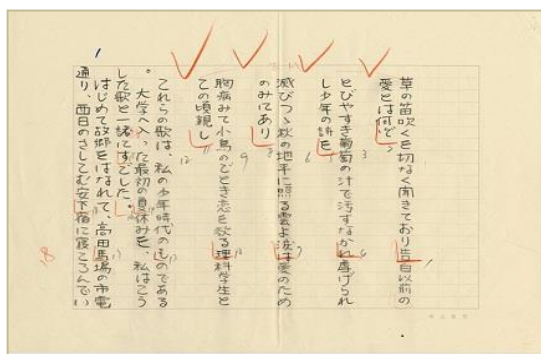 草の笛吹くを切なく聞きており告白以前の
愛とは何ぞ
とびやすき葡萄の汁で汚すなかれ虐げられ
し少年の詩を
滅びつゝ秋の地平に照る雲よ涙は愛のため
のみにあり
胸病みて小鳥のごとき恋を欲る理科学生と
この頃親し
これらの歌は、私の少年時代のものである
。大学へ入った最初の夏休みを、私はこう
した歌と一諸にすごした。
はじめて故郷をはなれて、高田馬場の市電
通り、西日のさしてむ安下宿に寝ころんでい